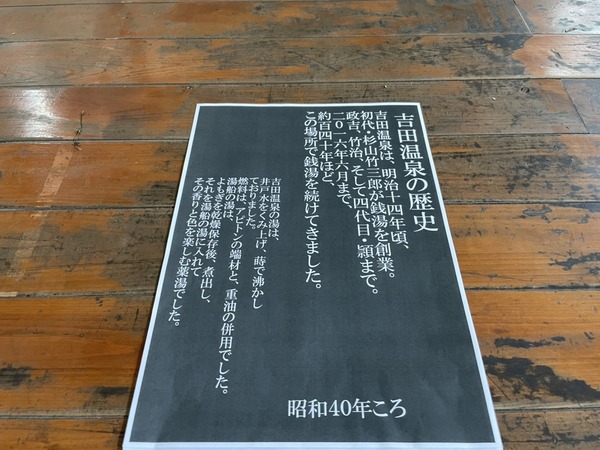 吉田温泉の歴史
吉田温泉は、明治十四年頃、
初代・杉山竹三郎が銭湯を創業。
政吉、竹治、そして四代目・顕まで。
二〇一六年六月まで、
約百四十年ほど、
この場所で銭湯を続けてきました。
吉田温泉の湯は、
井戸水をくみ上げ、蒔で沸かし
ておりました。
燃料は、アピトンの端材と、重油の併用でした。
湯船の湯は、
よもぎを乾燥保存後、煮出し、
それを湯船の湯に入れて
その香りと色を楽しむ薬湯でした。
昭和40年ころ